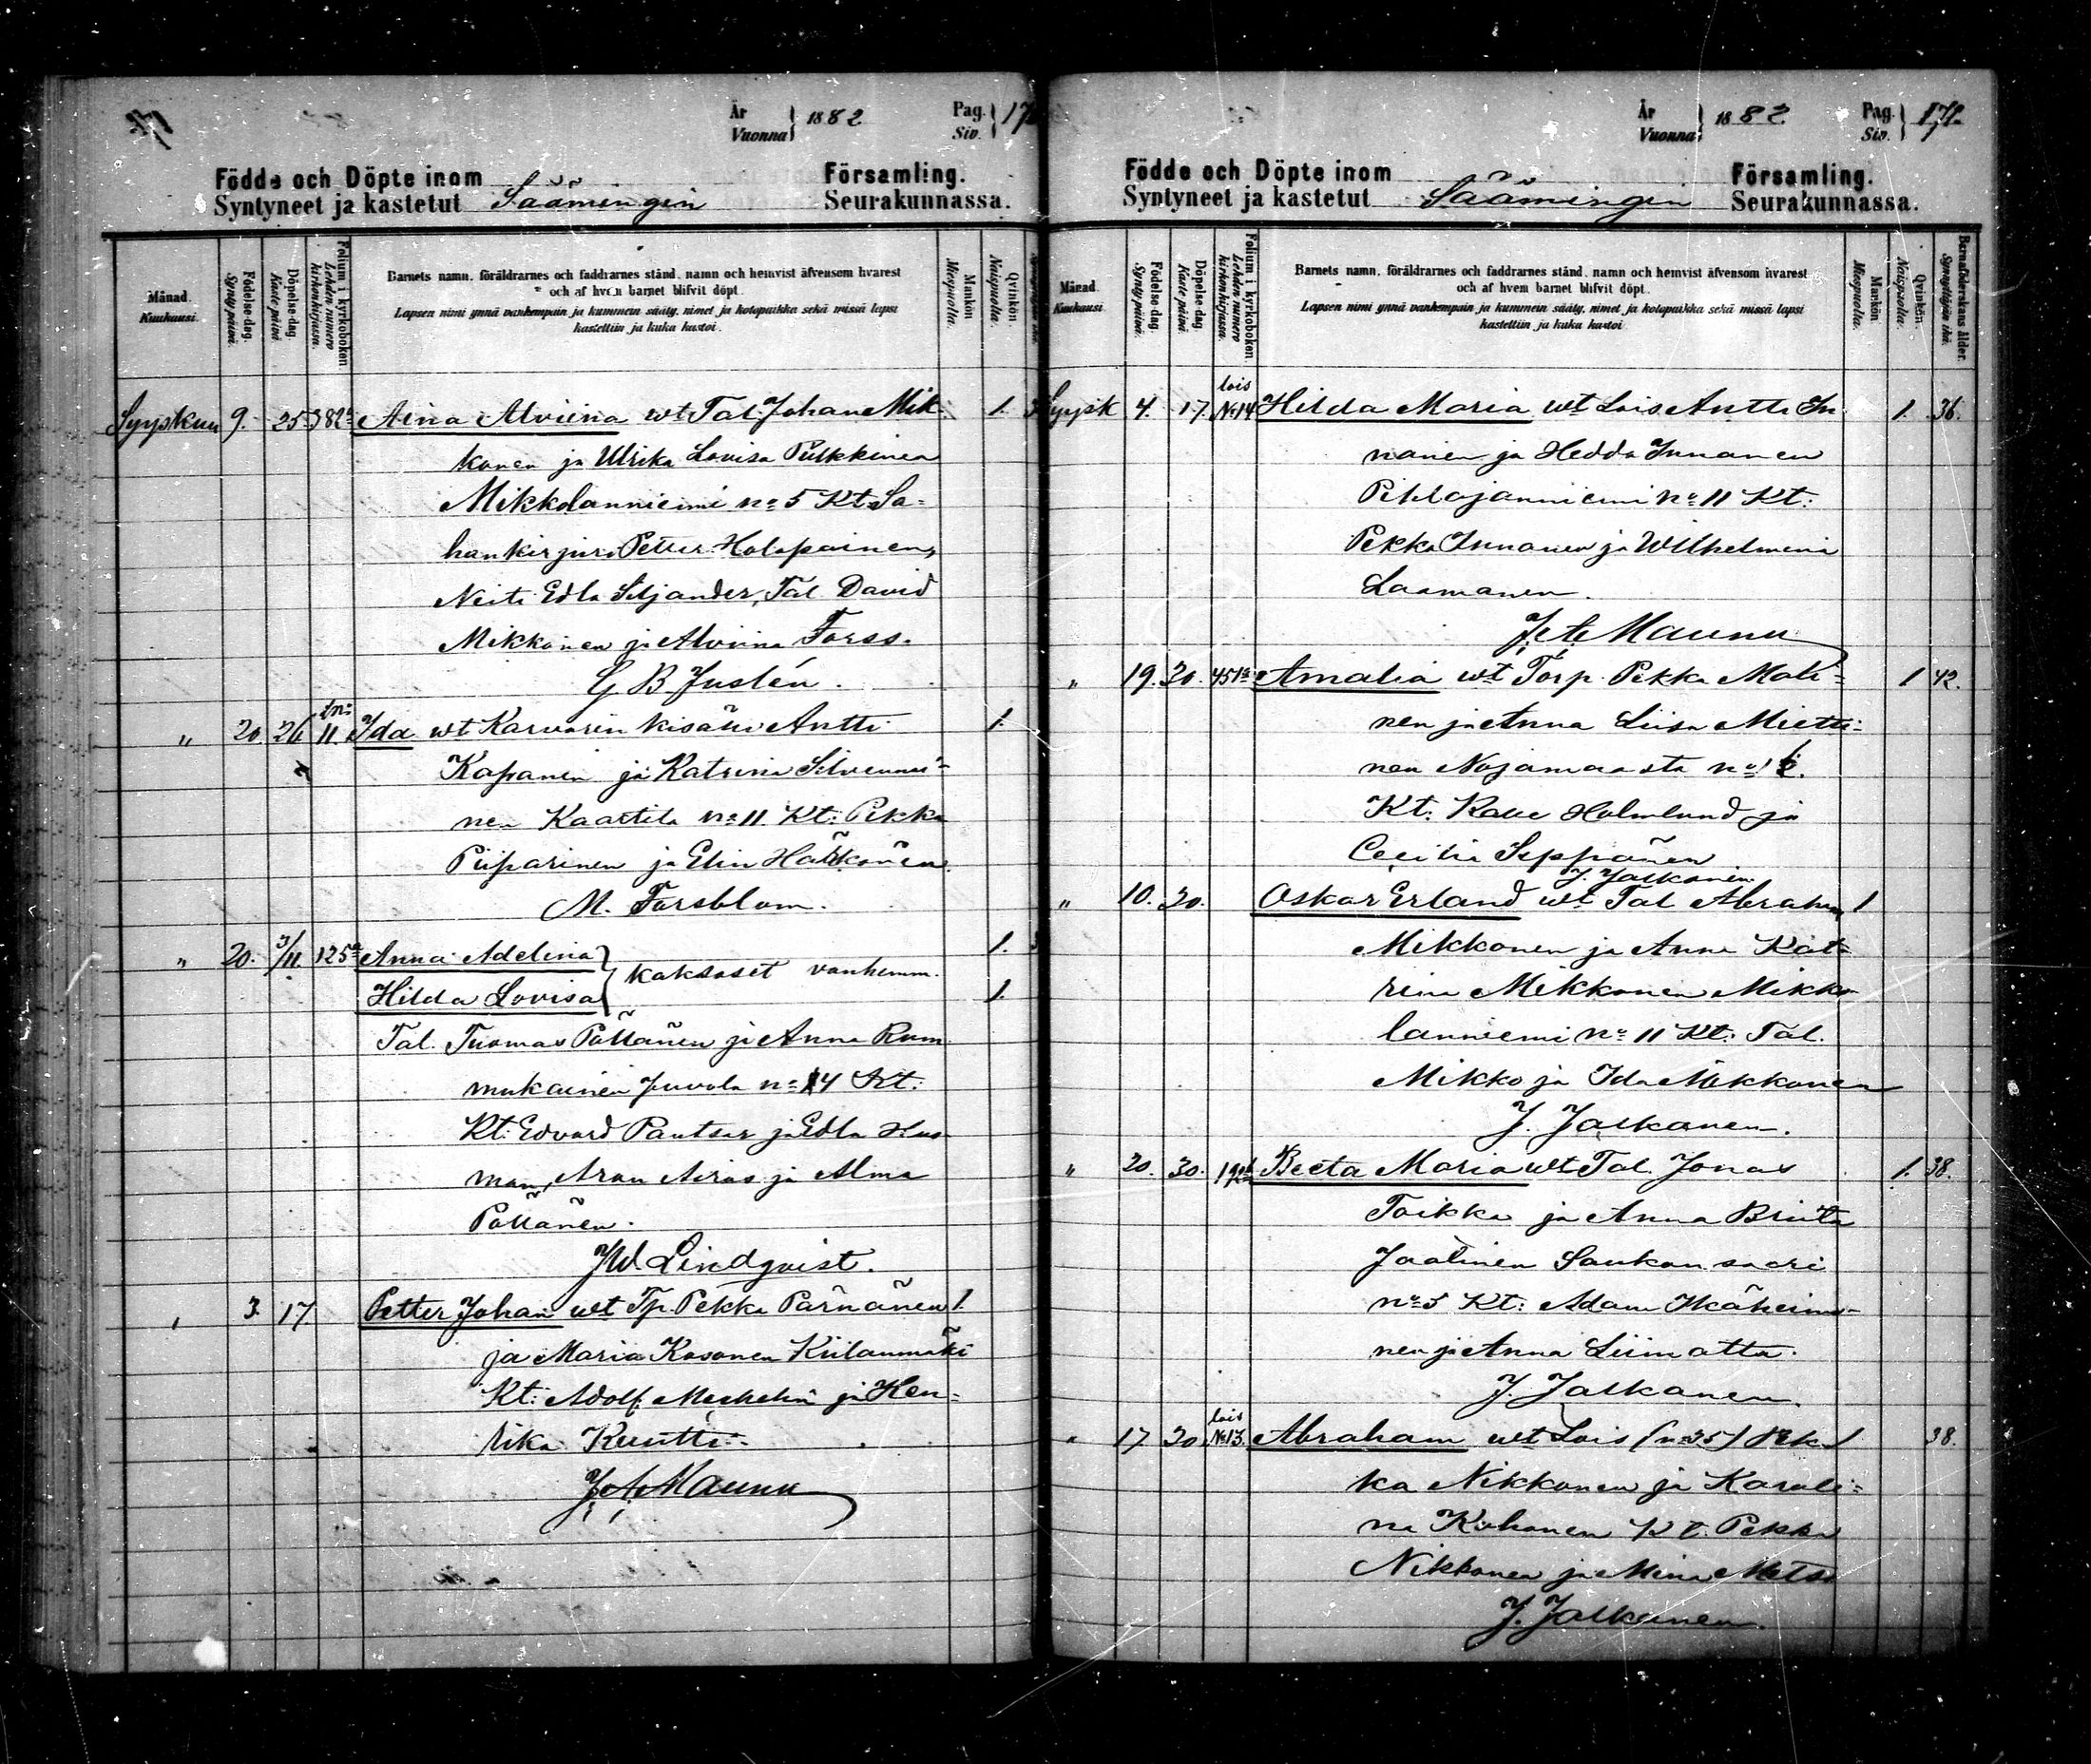 År
Vuonna } 1882. Pag.
Siv. } 170
Födde och Döpte inom Församling.
Syntyneet ja kastetut Säämingin Seurakunnassa.
Månad. Kuukausi. Födelse-dag. Synty päivä. Döpelse-dag. Kaste päivä. Folium i kyrkoboken. Lehden numero kirkonkirjassa.
Barnets namn, föräldrarnes och faddrarnes stånd, namn och hemvist äfvensom hvarest
och af hvem barnet blifvit döpt.
Lapsen nimi ynnä vanhempain ja kummein sääty, nimet ja kotopaikka sekä missä lapsi
kastettiin ja kuka kastoi.
Mankön. Miespuolia. Qvinkön. Naispuolia.
Syyskuu 9. 25. 382a Aina Alviina wt Tal. Johan Mik- 1.
konen ja Ulrika Lovisa Pulkkinen
Mikkolanniemi no 5 Kt. Sa-
hankirjuri Petter Holopainen,
Neiti Edla Siljander, Tal. David
Mikkonen ja Alviina Forss.
G B Juslén.
" 20. 26 11. Ida wt Karvarin kisälli Antti 1.
Kapanen ja Katrina Silvennoi-
nen Kaartila no 11. Kt: Pekka
Piiparinen ja Elin Härkönen.
M. Forsblom.
" 20. 3/11. 125a Anna Adelina 1.
Hilda Lovisa } kaksoset vanhemm. 1.
Tal. Tuomas Pöllänen ja Anna Rum
mukainen Juvola no 14
Kt: Edvard Pantsar ja Edla Hus
man, Aron Airas ja Alma
Pöllänen.
J.W. Lindqvist.
" 3. 17 Petter Johan wt Tp. Pekka Pärnänen 1.
ja Maria Kosonen Kiilanmäki
Kt: Adolf Mechelin ja Hen-
rika Kuntti.
J. A. Maunu
År
Vuonna } 1882. Pag.
Siv. } 171.
Födde och Döpte inom Församling.
Syntyneet ja kastetut Säämingin Seurakunnassa.
Månad. Kuukausi. Födelse-dag. Synty päivä. Döpelse-dag. Kaste päivä. Folium i kyrkoboken. Lehden numero kirkonkirjassa.
Barnets namn, föräldrarnes och faddrarnes stånd, namn och hemvist äfvensom hvarest
och af hvem barnet blifvit döpt.
Lapsen nimi ynnä vanhempain ja kummein sääty, nimet ja kotopaikka sekä missä lapsi
kastettiin ja kuka kastoi
Mankön Miespuolia. Qvinkön. Naispuolia. Barnaföderskans ålder. Synnyttäjän ikä.
Syysk 4. 17. lois No 14 Hilda Maria wt Lois Antti In 1. 36.
nanen ja Hedda Innanen
Pihlajanniemi no 11 Kt:
Pekka Innanen ja Wilhelmina
Laamanen.
J. A. Maunu
" 19. 20. 451a Amalia wt Torp. Pekka Mali- 1 42.
nen ja Anna Liisa Mietti-
nen Nojamaasta no
Kt: Kalle Holmlund ja
Cecilia Seppänen
J. Jalkanen.
" 10. 20. Oskar Erland wt Tal Abraham 1
Mikkonen ja Anna Kat-
rina Mikkonen Mikko
lanniemi no 11 Kt: Tal.
Mikko ja Ida Mikkonen
J. Jalkanen.
" 20. 30. Beeta Maria wt Tal. Jonas 1. 38.
Toikka ja Anna Briita
Jaatinen Saukonsaari
no 5 Kt: Adam Ikäheimo-
nen ja Anna Liimatta.
J. Jalkanen.
" 17 20 lois No 13. Abraham wt Lois (no 35) Pek- 1 38.
ka Nikkonen ja Karoli-
na Kohonen Kt. Pekka
Nikkonen ja Mina Matso
J. Jalkanen.